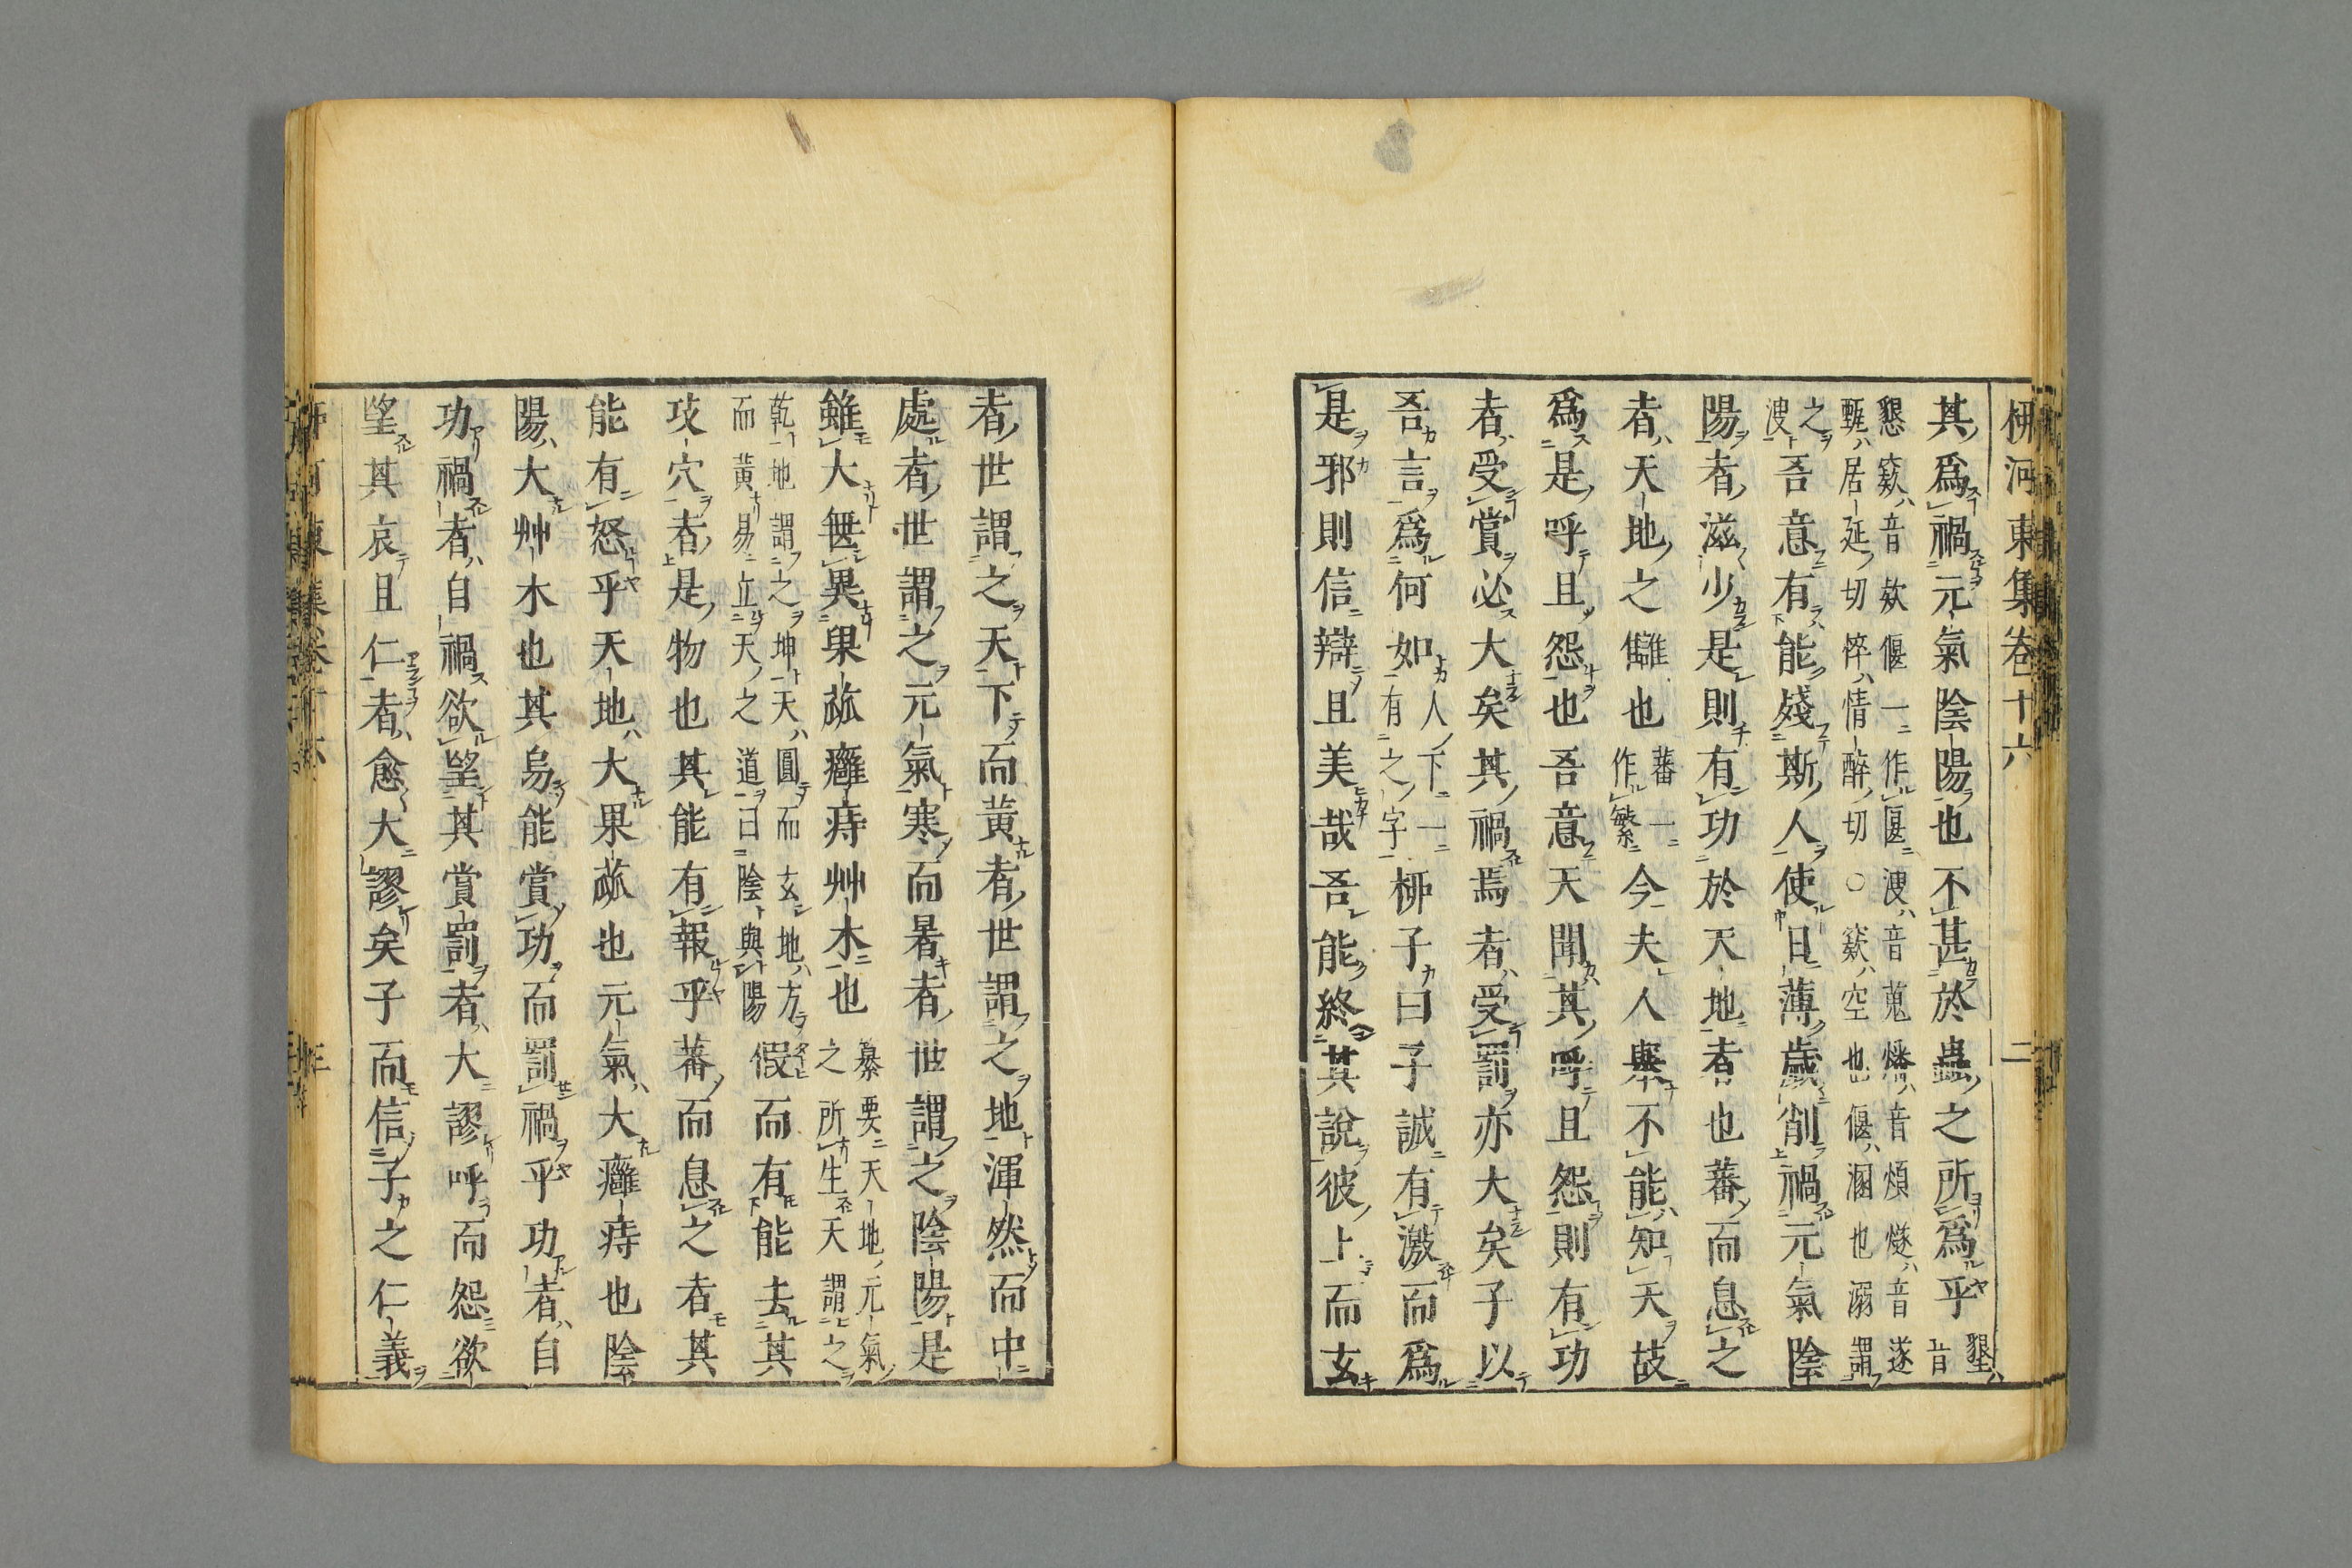 柳河東集卷十六 二
其爲禍元氣陰陽也不甚於蟲之所爲乎墾音
懇窾音欵偃一作匽溲音蒐燔音煩燧音遂
甄居延切悴情醉切○窾空也偃溷也溺謂
之溲吾意有能殘斯人使日薄歲削禍元氣陰
陽者滋少是則有功於天地者也蕃而息之
者天地之讎也蕃一作繁今夫人舉不能知天故
爲是呼且怨也吾意天聞其呼且怨則有功
者受賞必大矣其禍焉者受罰亦大矣子以
吾言爲何如人下一有之字柳子曰子誠有激而爲
是邪則信辯且美哉吾能終其說彼上而玄
者世謂之天下而黃者世謂之地渾然而中
處者世謂之元氣寒而暑者世謂之陰陽是
雖大無異果蓏癰痔艸木也綦要天地元氣之所生天謂之
乾地謂之坤天圓而玄地方而黃易立天之道曰陰與陽假而有能去其
攻穴者是物也其能有報乎蕃而息之者其
能有怒乎天地大果蓏也元氣大癰痔也陰
陽大艸木也其烏能賞功而罰禍乎功者自
功禍者自禍欲望其賞罰者大謬呼而怨欲
望其哀且仁者愈大謬矣子而信子之仁義
柳河東集卷十六 三